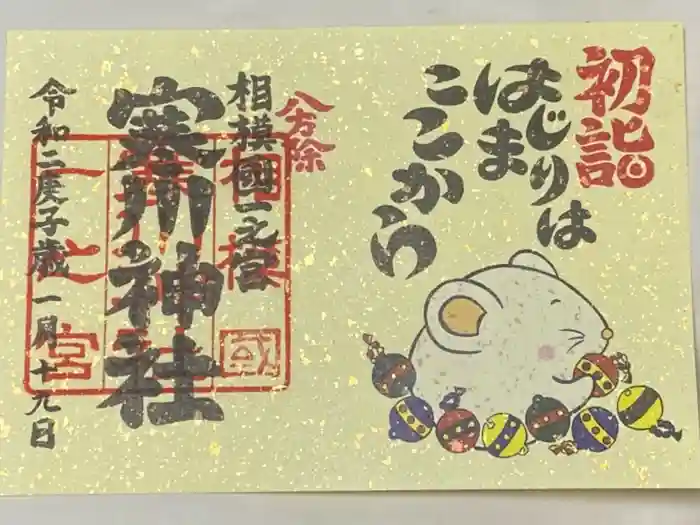 初詣
はじまりは
ここから
八方除
相模國一之宮
寒川神社
令和二庚子歳一月十九日